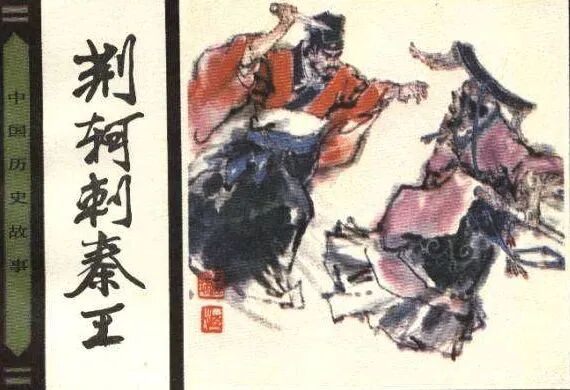 中国历史故事
荆轲刺秦王